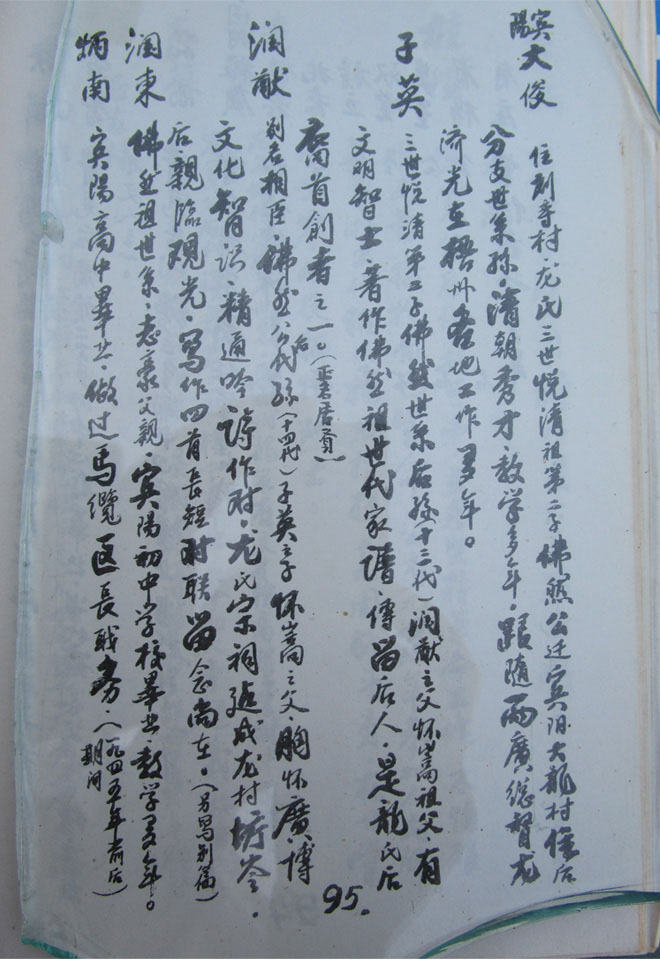 宾阳 大俊 住刘寺村龙氏三世悦清祖第二子佛然公迁宾阳大龍村
分支世系孙·清朝秀才·教学多年·跟随两廣總督龙
济光在梧州各地工作多年。
子英 三世悦清第二子佛然世系后孙(十三代)润猷之父怀嵩祖父·有
文明智士·著作佛然祖世代家譜·傳留后人·是龍氏后
裔首創者之一。
润猷 别名相臣·佛然公后代孙(十四代)子英之子怀嵩之父·胸怀廣博
文化智识·精通吟詩作对·龙氏宗祠建成龙村
后·親臨观光·寫作四首長短对联留念尚在。(另寫别篇)
润東 佛然祖世系·志豪父親·宾陽初中学校畢业·教学多年。
炳南 宾陽高中畢业·做过馬纜区長职务(一九四五年前后期间)
95.